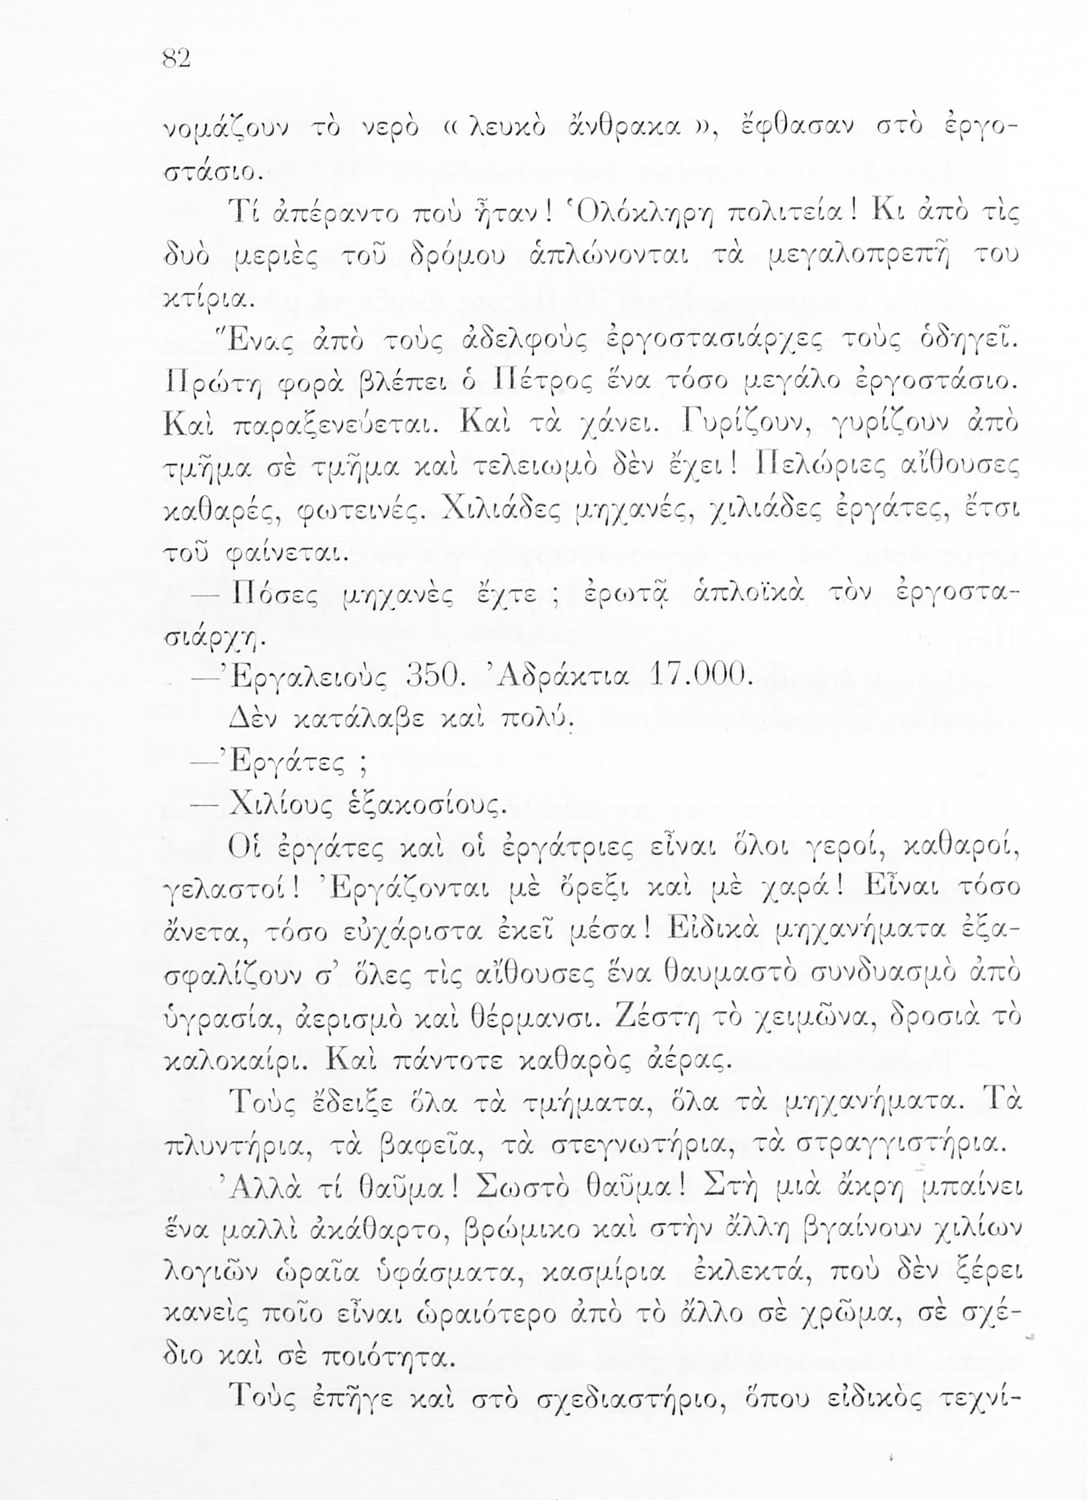 82
νομάζουν τὸ νερὸ « λευκὸ ἄνθρακα », ἔφθασαν στὸ ἐργο-
στάσιο.
Τί ἀπέραντο ποὺ ἦταν ! Ὁλόκληρη πολιτεία ! Κι ἀπὸ τὶς
δυὸ μεριὲς τοῦ δρόμου ἁπλώνονται τὰ μεγαλοπρεπῆ του
κτίρια.
Ἕνας ἀπὸ τοὺς ἀδελφοὺς ἐργοστασιάρχες τοὺς ὁδηγεῖ.
Πρώτη φορὰ βλέπει ὁ Πέτρος ἕνα τόσο μεγάλο ἐργοστάσιο.
Καὶ παραξενεύεται. Καὶ τὰ χάνει. Γυρίζουν, γυρίζουν ἀπὸ
τμῆμα σὲ τμῆμα καὶ τελειωμὸ δὲν ἔχει ! Πελώριες αἴθουσες
καθαρές, φωτεινές. Χιλιάδες μηχανές, χιλιάδες ἐργάτες, ἔτσι
τοῦ φαίνεται.
— Πόσες μηχανὲς ἔχτε ; ἐρωτᾷ ἁπλοϊκὰ τὸν ἐργοστα-
σιάρχη.
—Ἐργαλειοὺς 350. Ἀδράκτια 17.000.
Δὲν κατάλαβε καὶ πολύ.
—Ἐργάτες ;
— Χιλίους ἑξακοσίους.
Οἱ ἐργάτες καὶ οἱ ἐργάτριες εἶναι ὅλοι γεροί, καθαροί,
γελαστοί ! Ἐργάζονται μὲ ὄρεξι καὶ μὲ χαρά ! Εἶναι τόσο
ἄνετα, τόσο εὐχάριστα ἐκεῖ μέσα ! Εἰδικὰ μηχανήματα ἐξα-
σφαλίζουν σ’ ὅλες τὶς αἴθουσες ἕνα θαυμαστὸ συνδυασμὸ ἀπὸ
ὑγρασία, ἀερισμὸ καὶ θέρμανσι. Ζέστη τὸ χειμῶνα, δροσιὰ τὸ
καλοκαίρι. Καὶ πάντοτε καθαρὸς ἀέρας.
Τοὺς ἔδειξε ὅλα τὰ τμήματα, ὅλα τὰ μηχανήματα. Τὰ
πλυντήρια, τὰ βαφεῖα, τὰ στεγνωτήρια, τὰ στραγγιστήρια.
Ἀλλὰ τί θαῦμα ! Σωστὸ θαῦμα ! Στὴ μιὰ ἄκρη μπαίνει
ἕνα μαλλὶ ἀκάθαρτο, βρώμικο καὶ στὴν ἄλλη βγαίνουν χιλίων
λογιῶν ὡραῖα ὑφάσματα, κασμίρια ἐκλεκτά, ποὺ δὲν ξέρει
κανεὶς ποῖο εἶναι ὡραιότερο ἀπὸ τὸ ἄλλο σὲ χρῶμα, σὲ σχέ-
διο καὶ σὲ ποιότητα.
Τοὺς ἐπῆγε καὶ στὸ σχεδιαστήριο, ὅπου εἰδικὸς τεχνί-